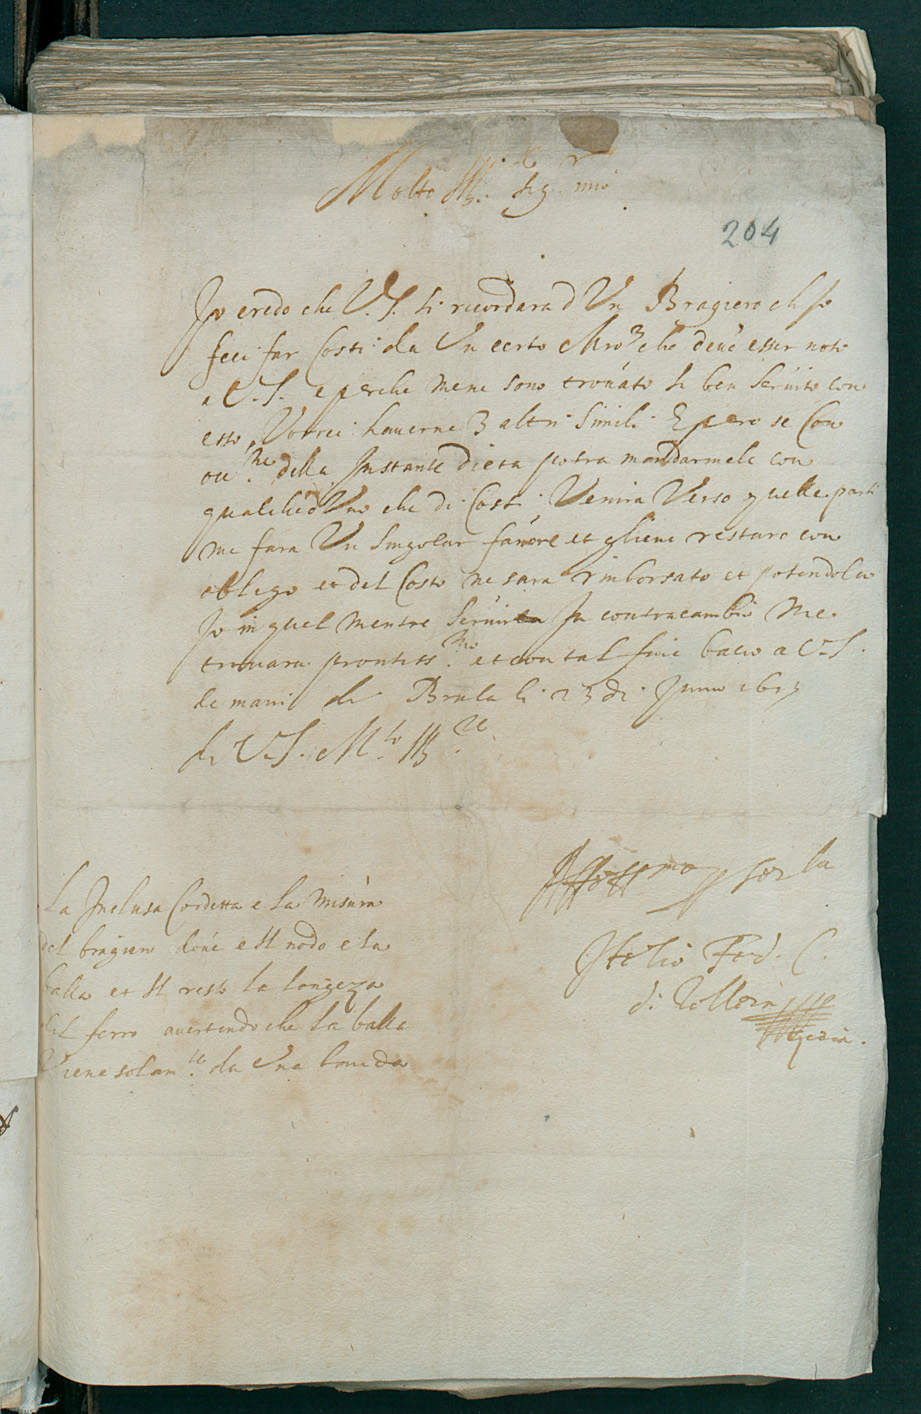 Molto Ill.re Sig.r mio
204
Io credo che V.S. si ricordara d Un Bragiero ch Io
feci far Costi da Un certo Mro che deue esser noto
a V.S. e perche mene sono trouato si ben seruito con
esso Vorrei hauerne 3 altri simili E pero se Con
della Instante dieta potra mandarmele con
qualched Uno che di Costi Venira Verso quelle parti
me fara Un singolar fauore et gliene restaro con
oblego et del Costo ne sara rimborsato et potendola
Io in quel mentre seruire In contracambio me
trouara prontiss.mo et con tal fine bacio a V.S.
le mani di Brula li 23 di Junio
di V.S. M.to Ill.re
Aff.mo per ser la
Itelio Fed. C.
di Zollern
La Inclusa Cordetta e la misura
del bragiero doue e Il nodo e la
balla et Il resto la longeza
del ferro auertendo che la balla
Viene solam.te da Una banda